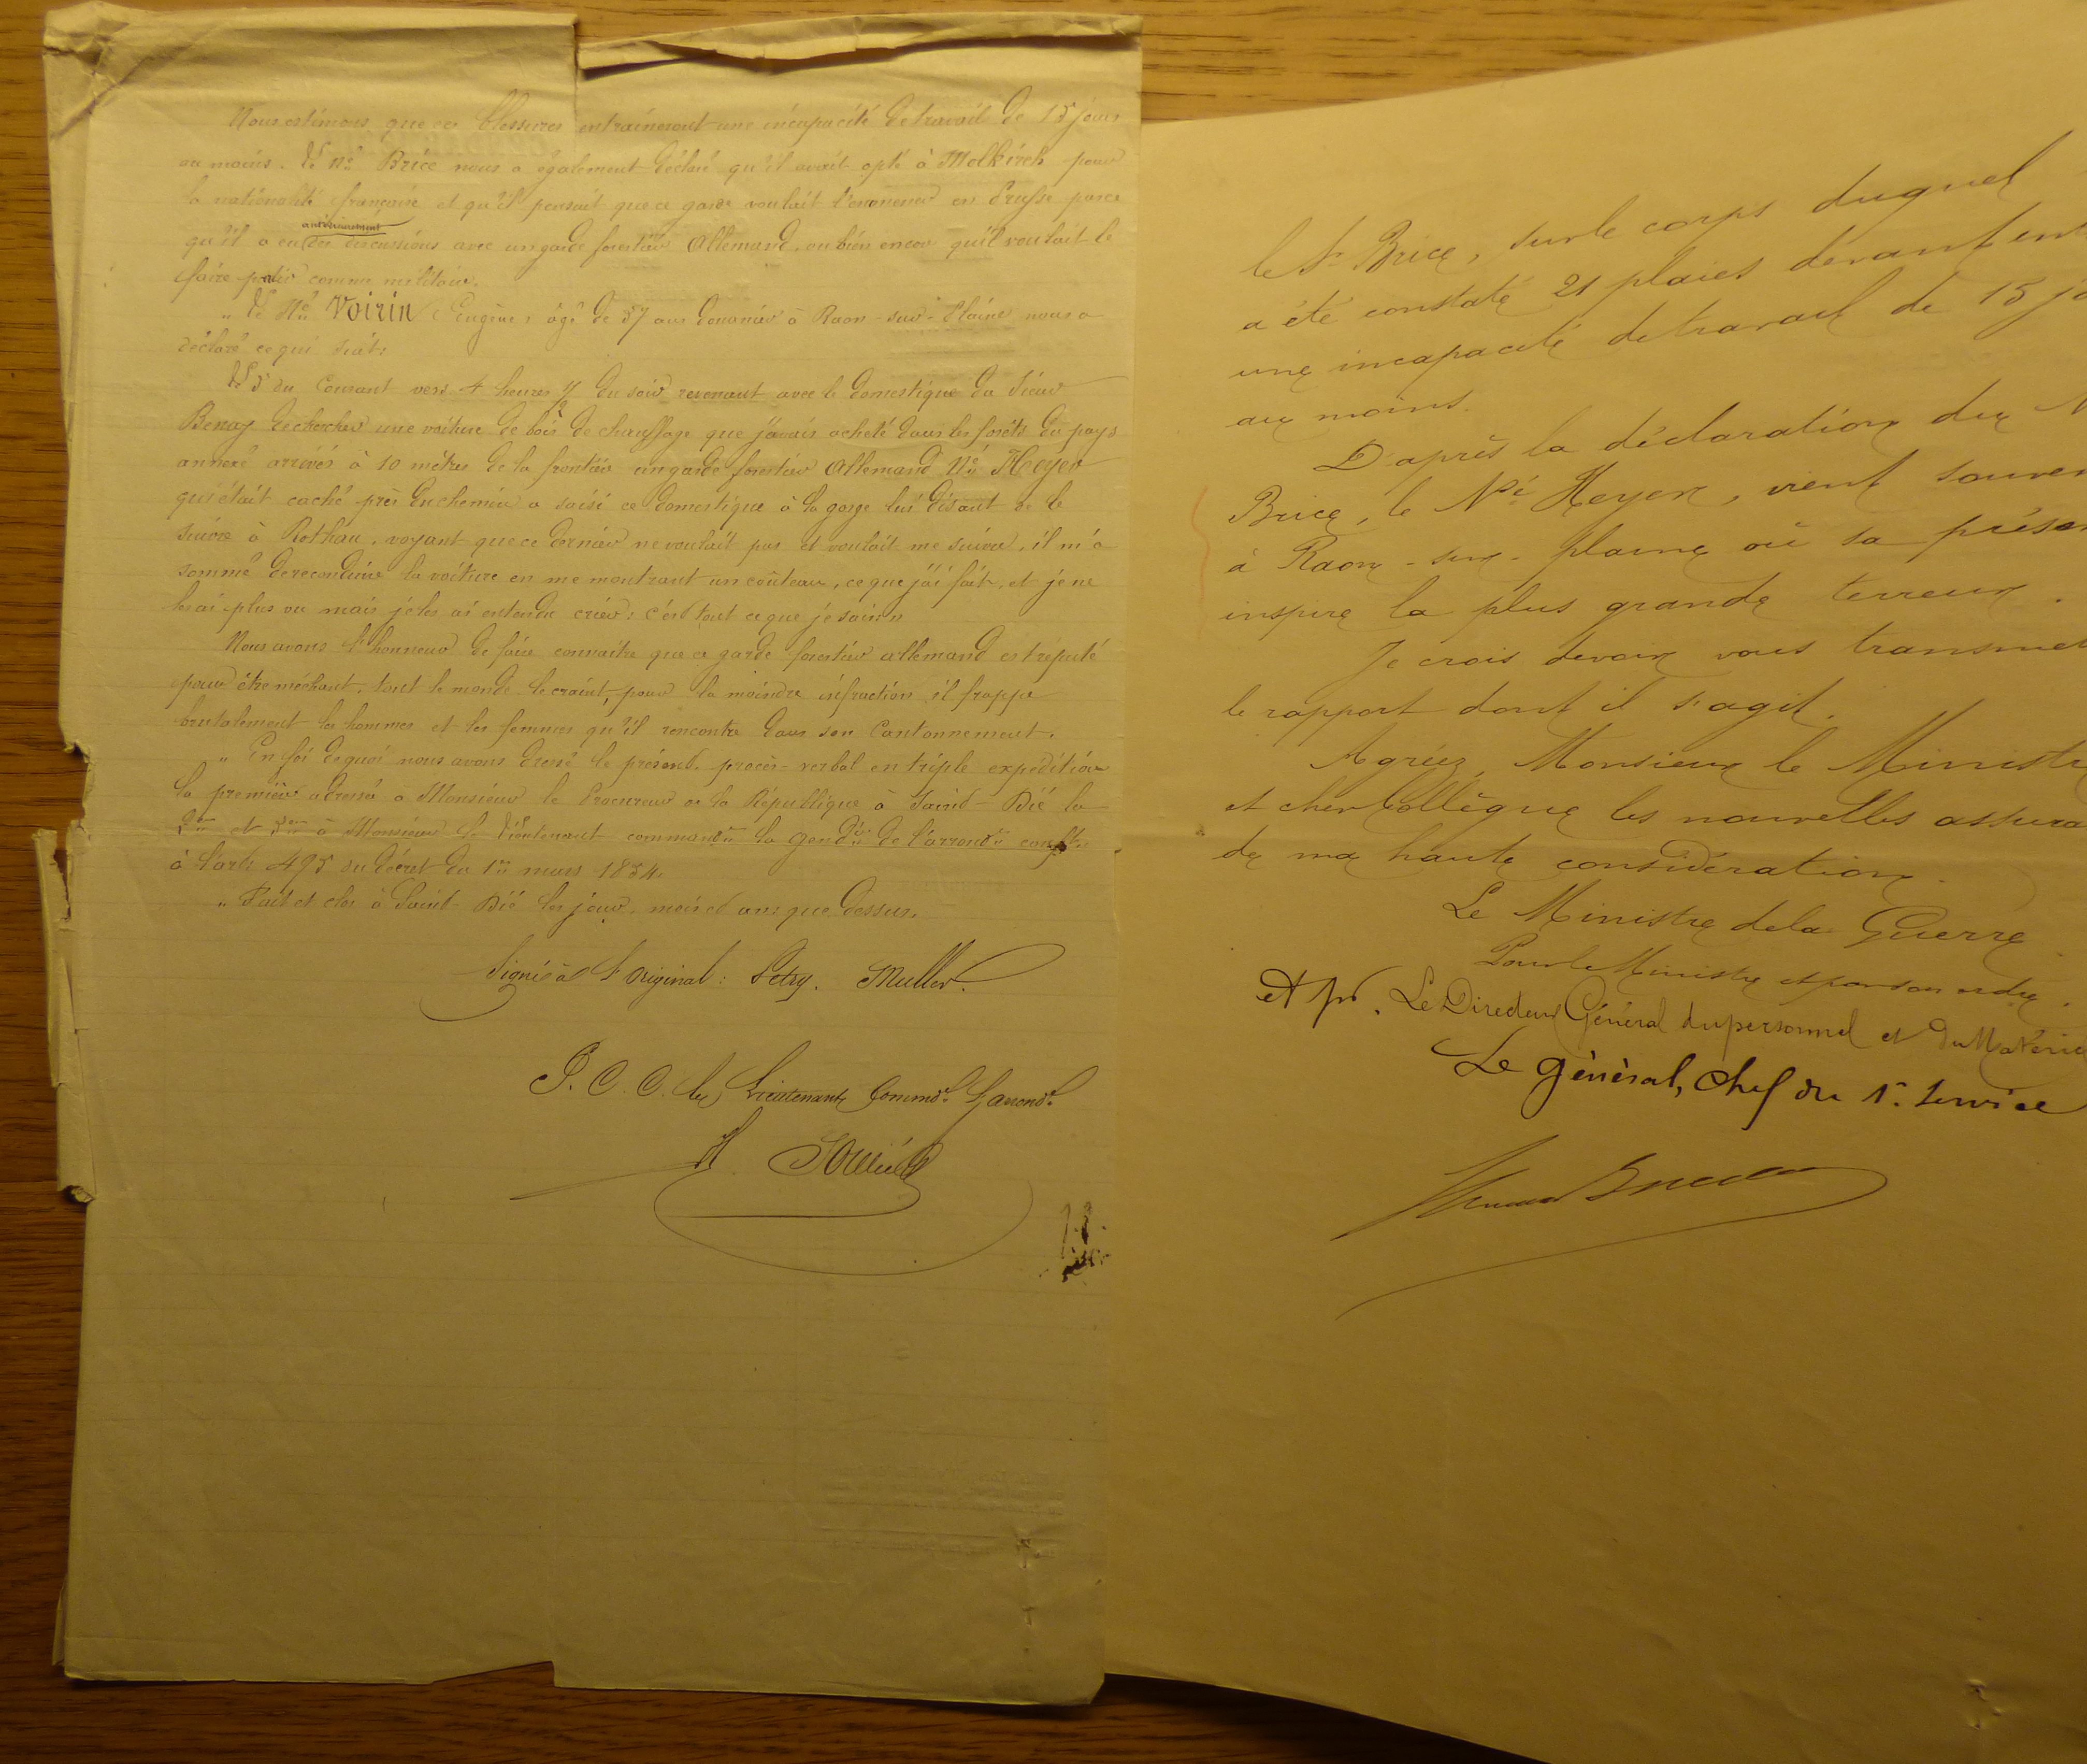 Nous estimons que ces blessures entraineront une incapacité de travail de 15 jours
au moins. Le Né Brice nous a également déclaré qu'il avait opté à Molkirch pour
la nationalité française et qu'il pensait que ce garde voulait l'emmener en Prusse parce
antérieurement
qu'il a eu des discussions avec un garde forestier Allemand, ou bien encore qu'il voulait le
faire partir comme militaire.
„ Le Né Voirin Eugène, âgé de 37 ans douanier à Raon-sur-Plaine nous a
déclaré ce qui suit:
Le 5 du Courant vers 4 heures ½ du soir revenant avec le domestique du Sieur
Benay de chercher une voiture de bois de chauffage que j'avais acheté dans les forêts du pays
annexé arrivés à 10 mètres de la frontière un garde forestier Allemand Né Heyer
qui était caché près du chemin a saisi ce domestique à la gorge lui disant de le
suivre à Rothau, voyant que ce dernier ne voulait pas et voulait me suivre, il m'a
sommé de reconduire la voiture en me montrant un couteau, ce que j'ai fait, et je ne
les ai plus vu mais je les ai entendu crier; c'est tout ce que je sais „
Nous avons l'honneur de faire connaître que ce garde forestier allemand est réputé
pour être méchant, tout le monde le craint, pour la moindre infraction il frappe
brutalement les hommes et les femmes qu'il rencontre dans son Cantonnement.
„ En foi de quoi nous avons dressé le présent procès-verbal en triple expédition
la première adressée à Monsieur le Procureur de la République à Saint-Dié la
2me et 3me à Monsieur le Lieutenant commandt la gendie de l'arrondt
à l'art. 495 du décret du 1er mars 1854.
„ Fait et clos à Saint-Dié les jour, mois et an que dessus.
Signé à l'original: Petry. Muller.
P. C. C. Le Lieutenant Commdt l'arrondt
le Sr Brice, sur le corps duquel
a été constaté 21 plaies devant ent
une incapacité de travail de 15 jo
au moins.
D'après la déclaration du N
Brice, le Né Heyer, vient souven
à Raon-sur-plaine où sa présen
inspire la plus grande terreur.
Je crois devoir vous transmet
le rapport dont il s'agit.
Agréez, Monsieur le Ministre
et cher Collègue les nouvelles assura
de ma haute considération.
Le Ministre de la Guerre
Pour le Ministre et par son ordre.
et pr. Le Directeur Général du personnel et du Matérie
Le général, chef du 1er Service